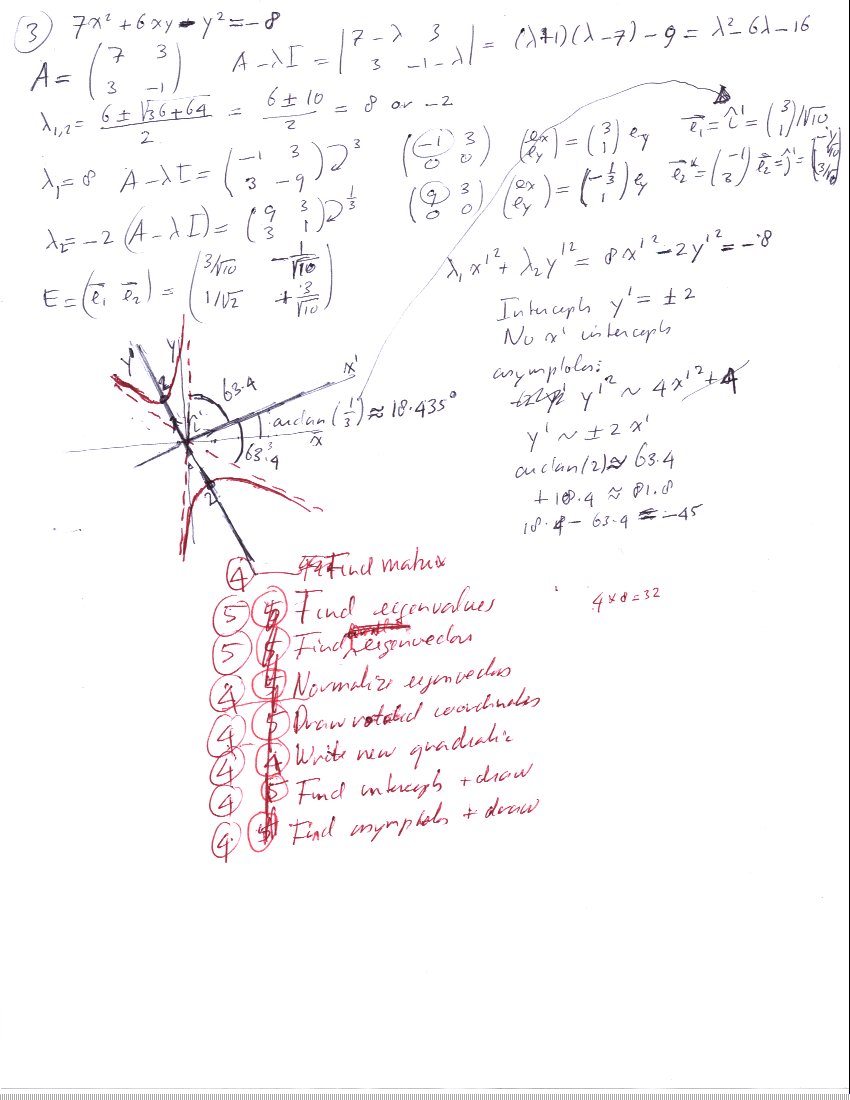 3 7x² + 6xy - y² = -8
A = (7 3; 3 -1) A - λI = |7-λ 3; 3 -1-λ| = (λ+1)(λ-7) - 9 = λ² - 6λ - 16
λ₁,₂ = (6 ± √36+64)/2 = (6 ± 10)/2 = 8 or -2
λ₁ = 8 A - λI = (-1 3; 3 -9) 3 (-1 3; 0 0) (ex; ey) = (3; 1) ey e₁ = î' = (3; 1)/√10
λ₂ = -2 (A - λI) = (9 3; 3 1) 1/3 (9 3; 0 0) (ex; ey) = (-1/3; 1) ey e₂ = (-1; 3) e₂ = ĵ' = (-1/√10; 3/√10)
E = (e₁ e₂) = (3/√10 -1/√10; 1/√2 +3/√10)
λ₁x'² + λ₂y'² = 8x'² - 2y'² = -8
Intercepts y' = ±2
No x' intercepts
asymptotes:
y'² ~ 4x'² + 4
y' ~ ±2x'
arctan(2) ≈ 63.4
+18.4 ≈ 81.8
18.4 - 63.4 = -45
y' y x'
2 63.4
arctan(1/3) ≈ 18.435°
x
63.4
2
4 Find matrix
5 Find eigenvalues
4 × 8 = 32
5 5 Find eigenvectors
4 Normalize eigenvectors
4 5 Draw rotated coordinates
4 4 Write new quadratic
4 5 Find intercepts + draw
4 Find asymptotes + draw